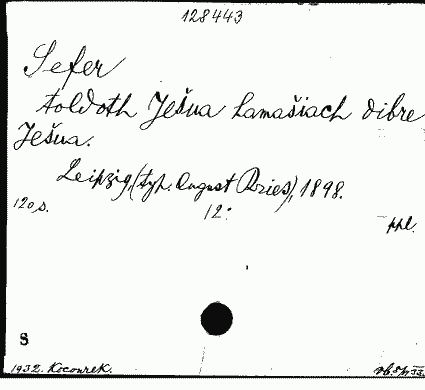 128443
Sefer
toldoth Ješua hamašiach dibre
Ješua.
Leipzig, (typ. August Pries), 1898.
120 s. 12° ppl.
S
1932. Kocourek.